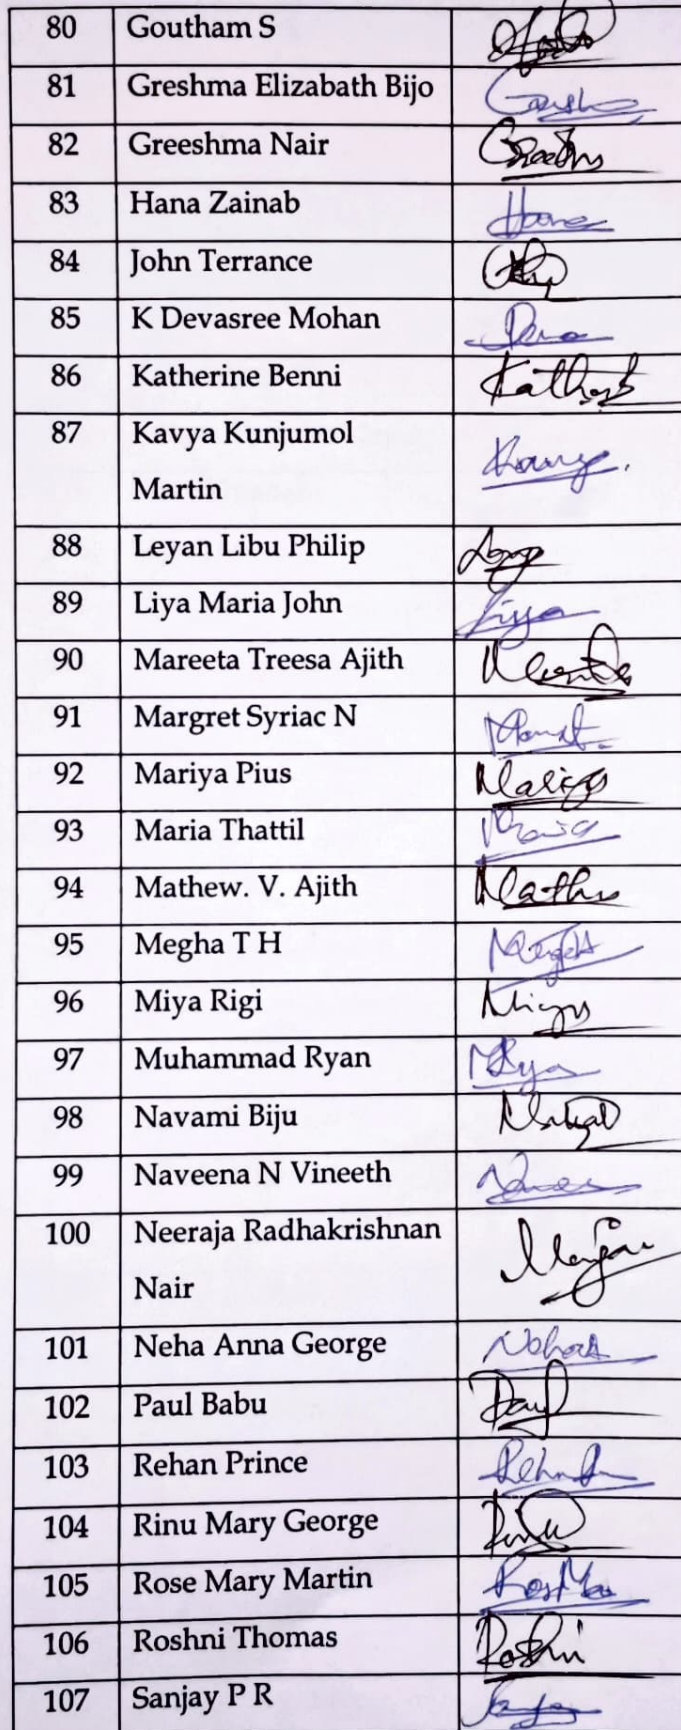 80 Goutham S
81 Greshma Elizabath Bijo
82 Greeshma Nair
83 Hana Zainab
84 John Terrance
85 K Devasree Mohan
86 Katherine Benni
87 Kavya Kunjumol
Martin
88 Leyan Libu Philip
89 Liya Maria John Liya
90 Mareeta Treesa Ajith
91 Margret Syriac N
92 Mariya Pius
93 Maria Thattil
94 Mathew. V. Ajith
95 Megha T H
96 Miya Rigi
97 Muhammad Ryan
98 Navami Biju
99 Naveena N Vineeth
100 Neeraja Radhakrishnan
Nair
101 Neha Anna George
102 Paul Babu Paul
103 Rehan Prince
104 Rinu Mary George Rinu
105 Rose Mary Martin
106 Roshni Thomas Roshni
107 Sanjay P R